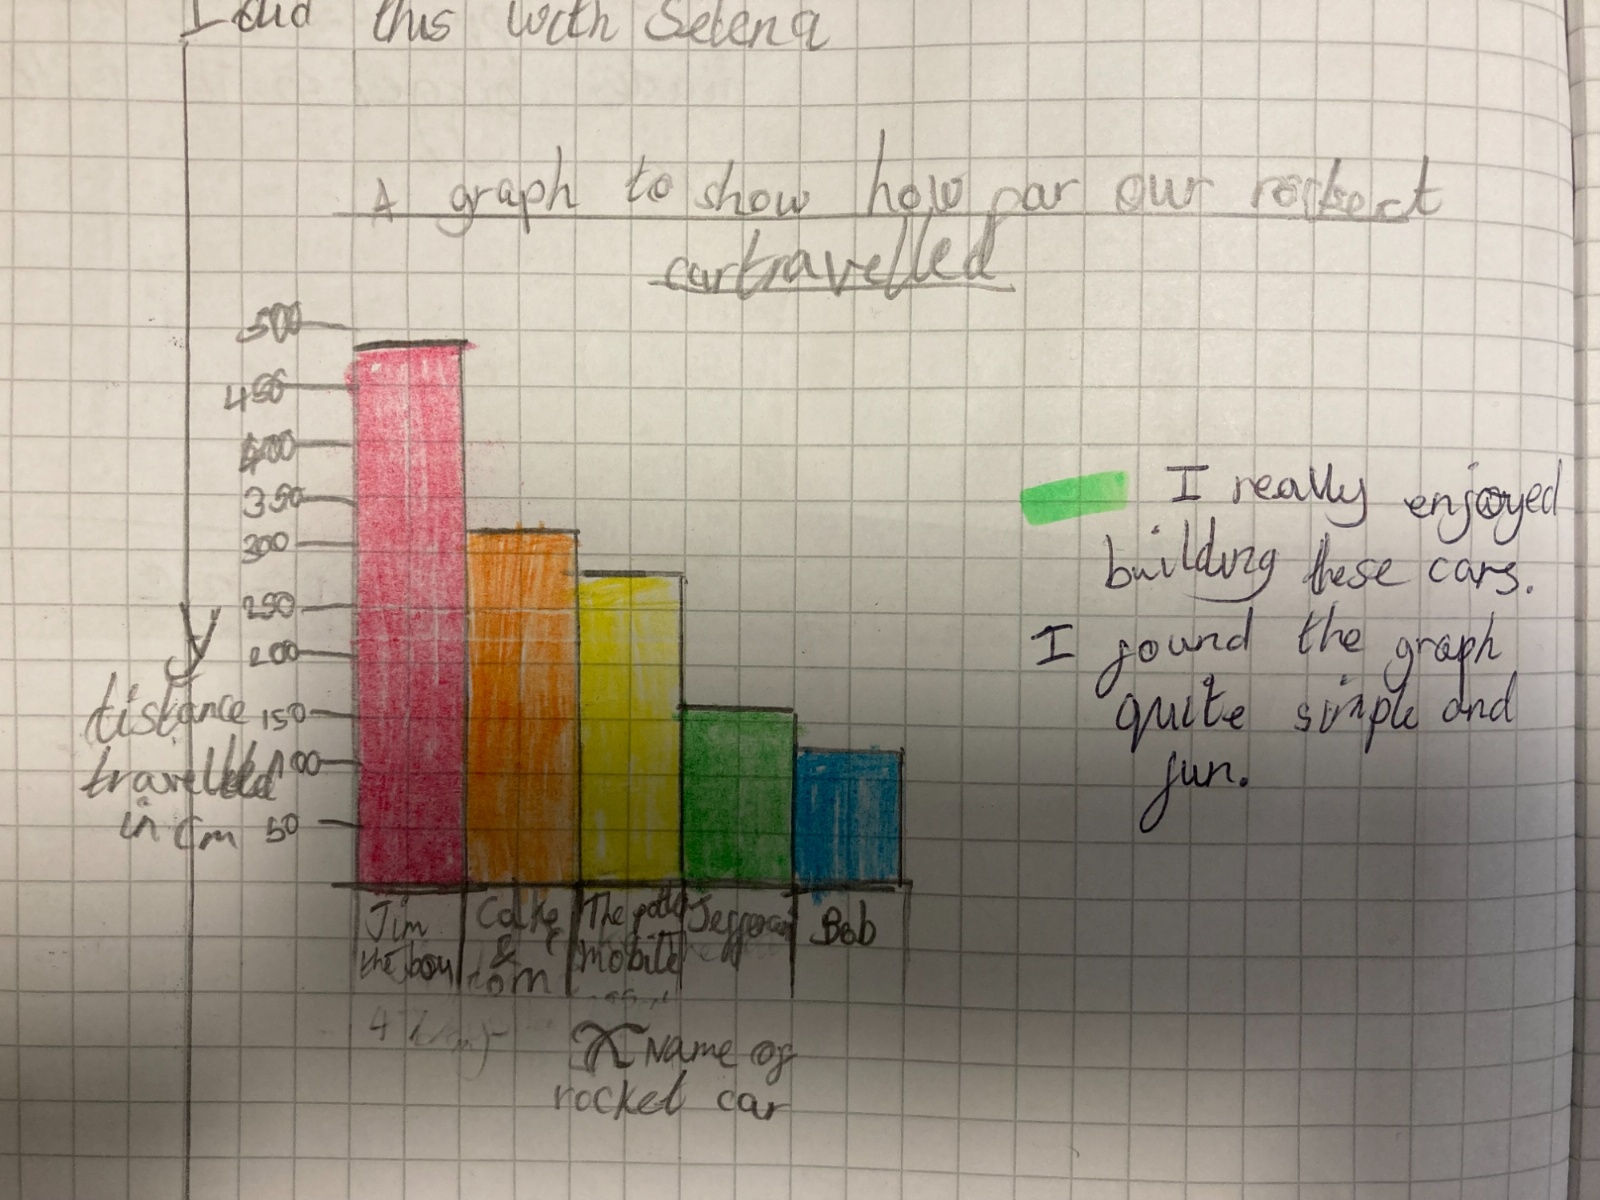 I did this with Selena
A graph to show how far our rocket
car travelled
500
450
400
350
300
250
200
150
100
50
y
distance
travelled
in cm
Jim
the boy
Cake
&
com
The potter
mobile
Jefferson
Bob
x Name of
rocket car
I really enjoyed
building these cars.
I found the graph
quite simple and
fun.